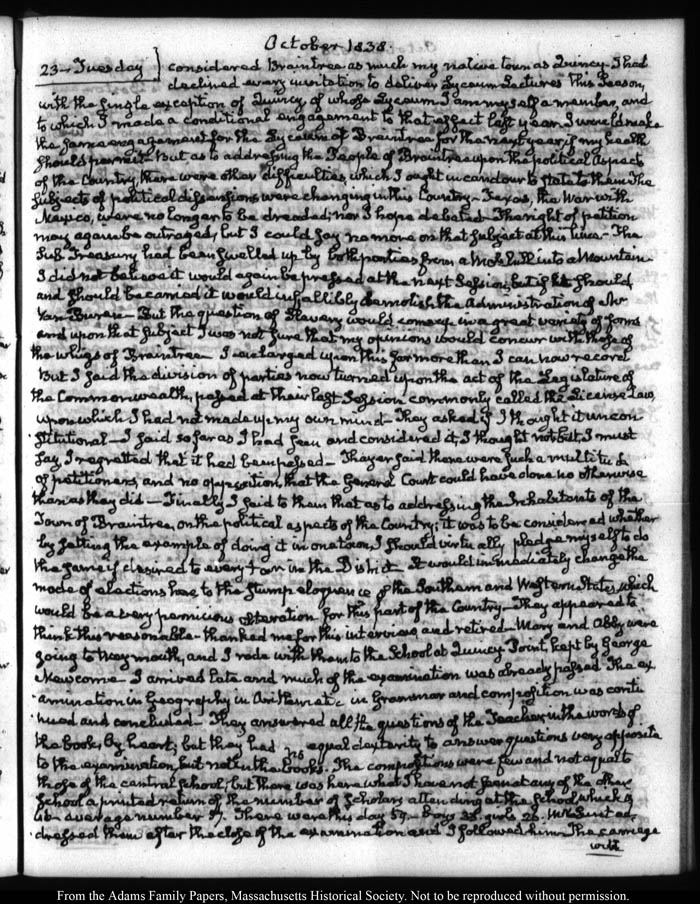 October 1838.
23 – Tuesday } considered Braintree as much my native town as Quincy – I had
declined every invitation to deliver Lyceum Lectures this Season,
with the single exception of Quincy of whose Lyceum I am myself a member, and
to which I made a conditional engagement to that effect last year. I would make
the same engagement for the Lyceum of Braintree for the next year, if my health
should permit – But as to addressing the People of Braintree upon the political Aspects
of the Country, there were other difficulties, which I ought in candour to state to them. The
subjects of political dissensions were changing in this Country – Texas, the War with
Mexico, were no longer to be dreaded; nor I hope debated – The right of petition
may again be outraged, but I could say no more on that subject at this time – The
Sub Treasury had been swelled up by both parties from a Mole hill into a Mountain –
I did not believe it would again be pressed at the next Session, but if it should
and should be carried it would infallibly demolish the Administration of Mr
Van Buren – But the question of Slavery would come up in a great variety of forms
and upon that subject I was not sure that my opinions would concur with those of
the whigs of Braintree – I enlarged upon this far more than I can now record
But I said the division of parties now turned upon the act of the Legislature of
the Commonwealth, passed at their last Session commonly called the License Law,
upon which I had not made up my own mind – They asked if I thought it uncon
stitutional – I said so far as I had seen and considered it, I thought not but I must
say, I regretted that it had been passed – Thayer said there were such a multitude
of petitioners, and no opposition, that the General Court could have done no otherwise
than as they did – Finally I said to them that as to addressing the Inhabitants of the
Town of Braintree, on the political aspects of the Country, it was to be considered whether
by setting the example of doing it in one town, I should virtually pledge myself to do
the same if desired to every town in the District – It would immediately change the
mode of elections here to the stump eloquence of the Southern and Western States, which
would be a very pernicious alteration for this part of the Country – They appeared to
think this reasonable – thanked me for this interview, and retired – Mary and Abby were
going to Weymouth, and I rode with them to the School at Quincy Point, kept by George
Newcome – I arrived late and much of the examination was already passed. The ex
amination in Geography in Arithmetic in Grammar and composition was conti
nued and concluded – They answered all the questions of the Teacher, in the words of
the book, by heart; but they had no equal dexterity to answer questions very apposite
to the examination, but not in the books. The compositions were few and not equal to
those of the central school; but there was here what I have not seen at any of the other
Schools a printed return of the number of Scholars attending at the School which is
average number 57. There were this day 59 – boys 33. girls 26. Mr Lunt ad
dressed them after the close of the examination and I followed him – The carriage
with
From the Adams Family Papers, Massachusetts Historical Society. Not to be reproduced without permission.